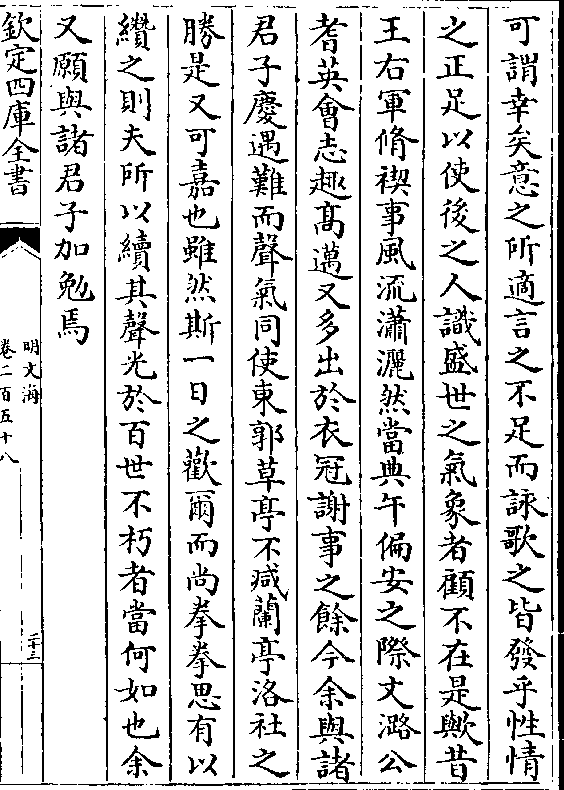 可謂幸矣意之所適言之不足而詠歌之皆發乎性情
之正足以使後之人識盛世之氣象者顧不在是歟昔
王右軍脩禊事風流瀟灑然當典午偏安之際文潞公
耆英會志趣髙邁又多出於衣冠謝事之餘今余與諸
君子慶遇難而聲氣同使東郭草亭不减蘭亭洛社之
勝是又可嘉也雖然斯一日之歡爾而尚拳拳思有以
纘之則夫所以續其聲光於百世不朽者當何如也余
又願與諸君子加勉焉
欽定四庫全書
明文海
卷二百五十八
二十三